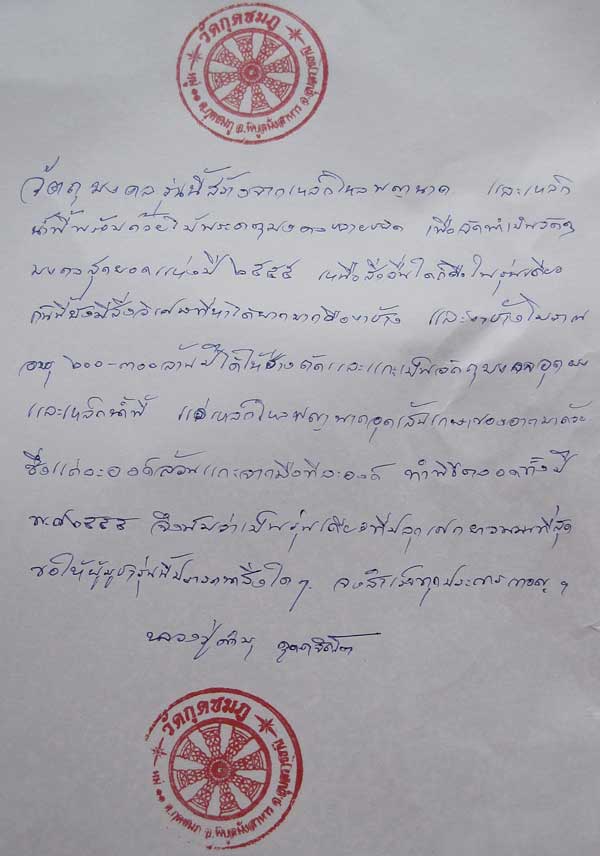 วัดกุดชมภู
หมู่ ๑๑ ต.กุดชมภู อ.พิบูลมังสาหาร จ.อุบลฯ
วัตถุมงคลรุ่นนี้สร้างจากเหล็กไหลพญานาค และเหล็ก
น้ำพี้พร้อมด้วย เพื่อจัดทำเป็นวัตถุ
มงคลสุดยอดแห่งปี ๒๕๕๕ เหนือสิ่งอื่นใดก็คือในรุ่นเดียว
กันนี้ยังมีสิ่งวิเศษที่หาได้ยากมากคืองาช้าง และงาช้างโบราณ
อายุ ๒๐๐-๓๐๐ล้านปีได้ให้ช่างตัดและแกะเป็นวัตถุมงคลอุดผง
และเหล็กน้ำพี้ แร่เหล็กไหลพญานาคอุดเส้นเกษาของอาตมาด้วย
ซึ่งแต่ละองค์ล้วนแกะจากมือทีละองค์ ทำพิธีตลอดทั้งปี
พ.ศ.๒๕๕๕ จึงนับว่าเป็นรุ่นเดียวที่ปลุกเสกยาวนานที่สุด
ขอให้ผู้บูชารุ่นนี้ปรารถนาสิ่งใดๆ จงสำเร็จทุกประการเทอญฯ
หลวงปู่คำบุ คุตฺตจิตฺโต
วัดกุดชมภู
หมู่ ๑๑ ต.กุดชมภู อ.พิบูลมังสาหาร จ.อุบลฯ